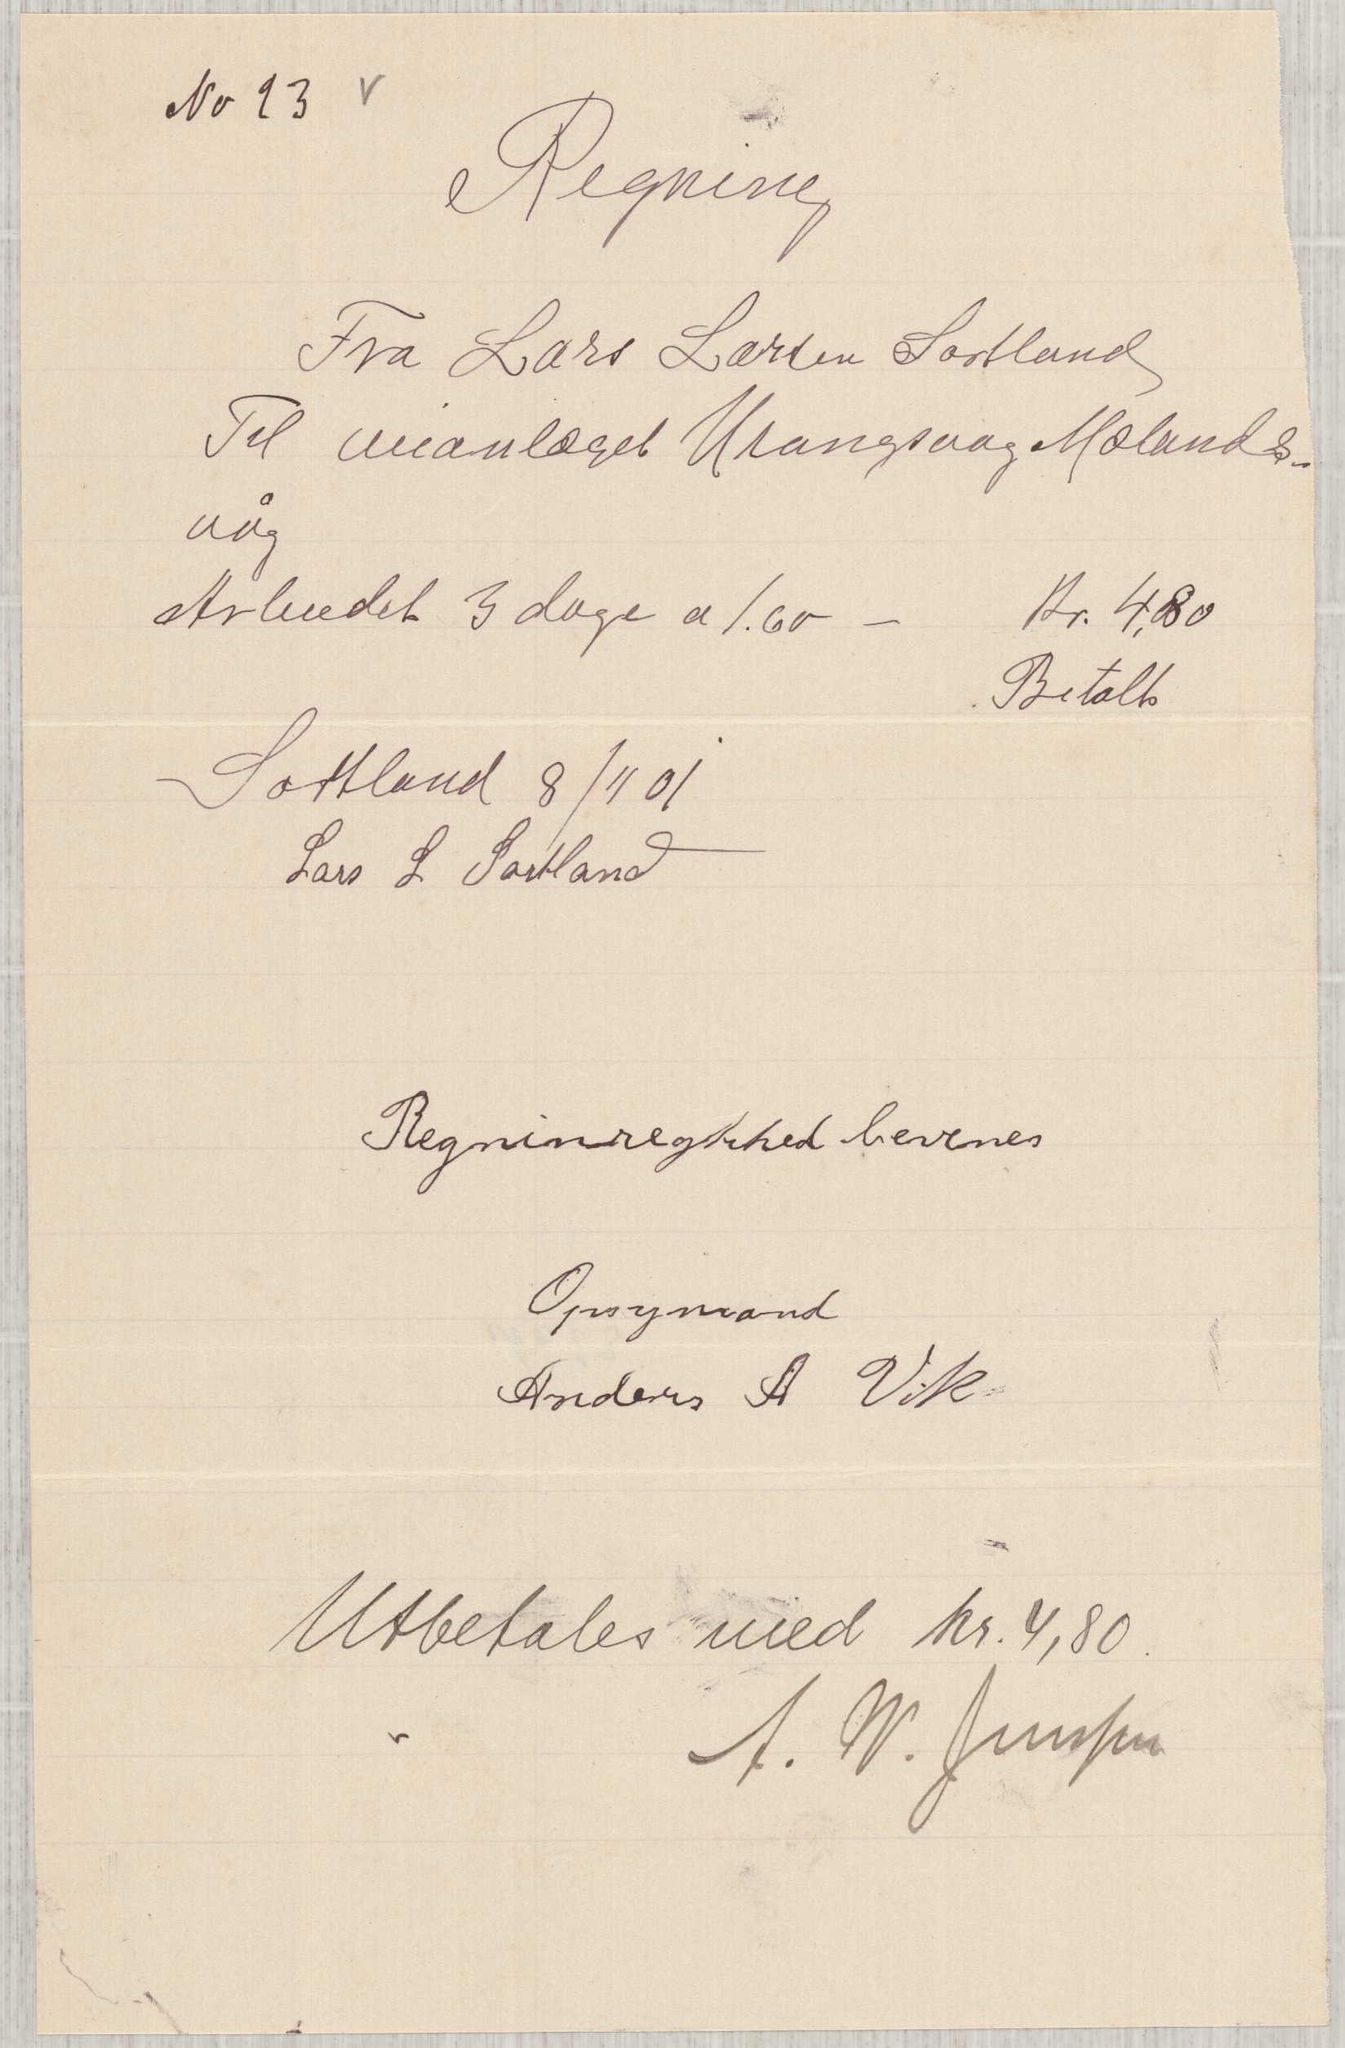 No 23 v
Regning
Fra Lars Larsen Sortland
Til veianlæget Urangsvag Mælands-
våg
Arbeidet 3 dage a 1.60 — Kr. 4,80
Betalt
Sortland 8/11 01
Lars L Sortland
Regninregtihed bevenes
Opsymand
Anders A Vik
Utbetales med kr. 4,80.
A. W. Jensen